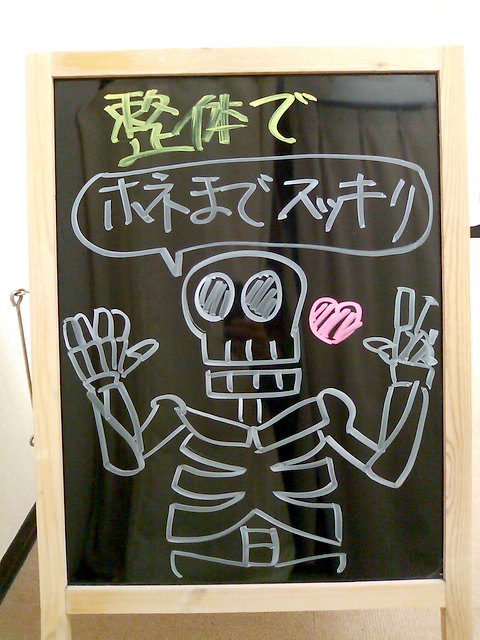 整体で
ホネまでスッキリ